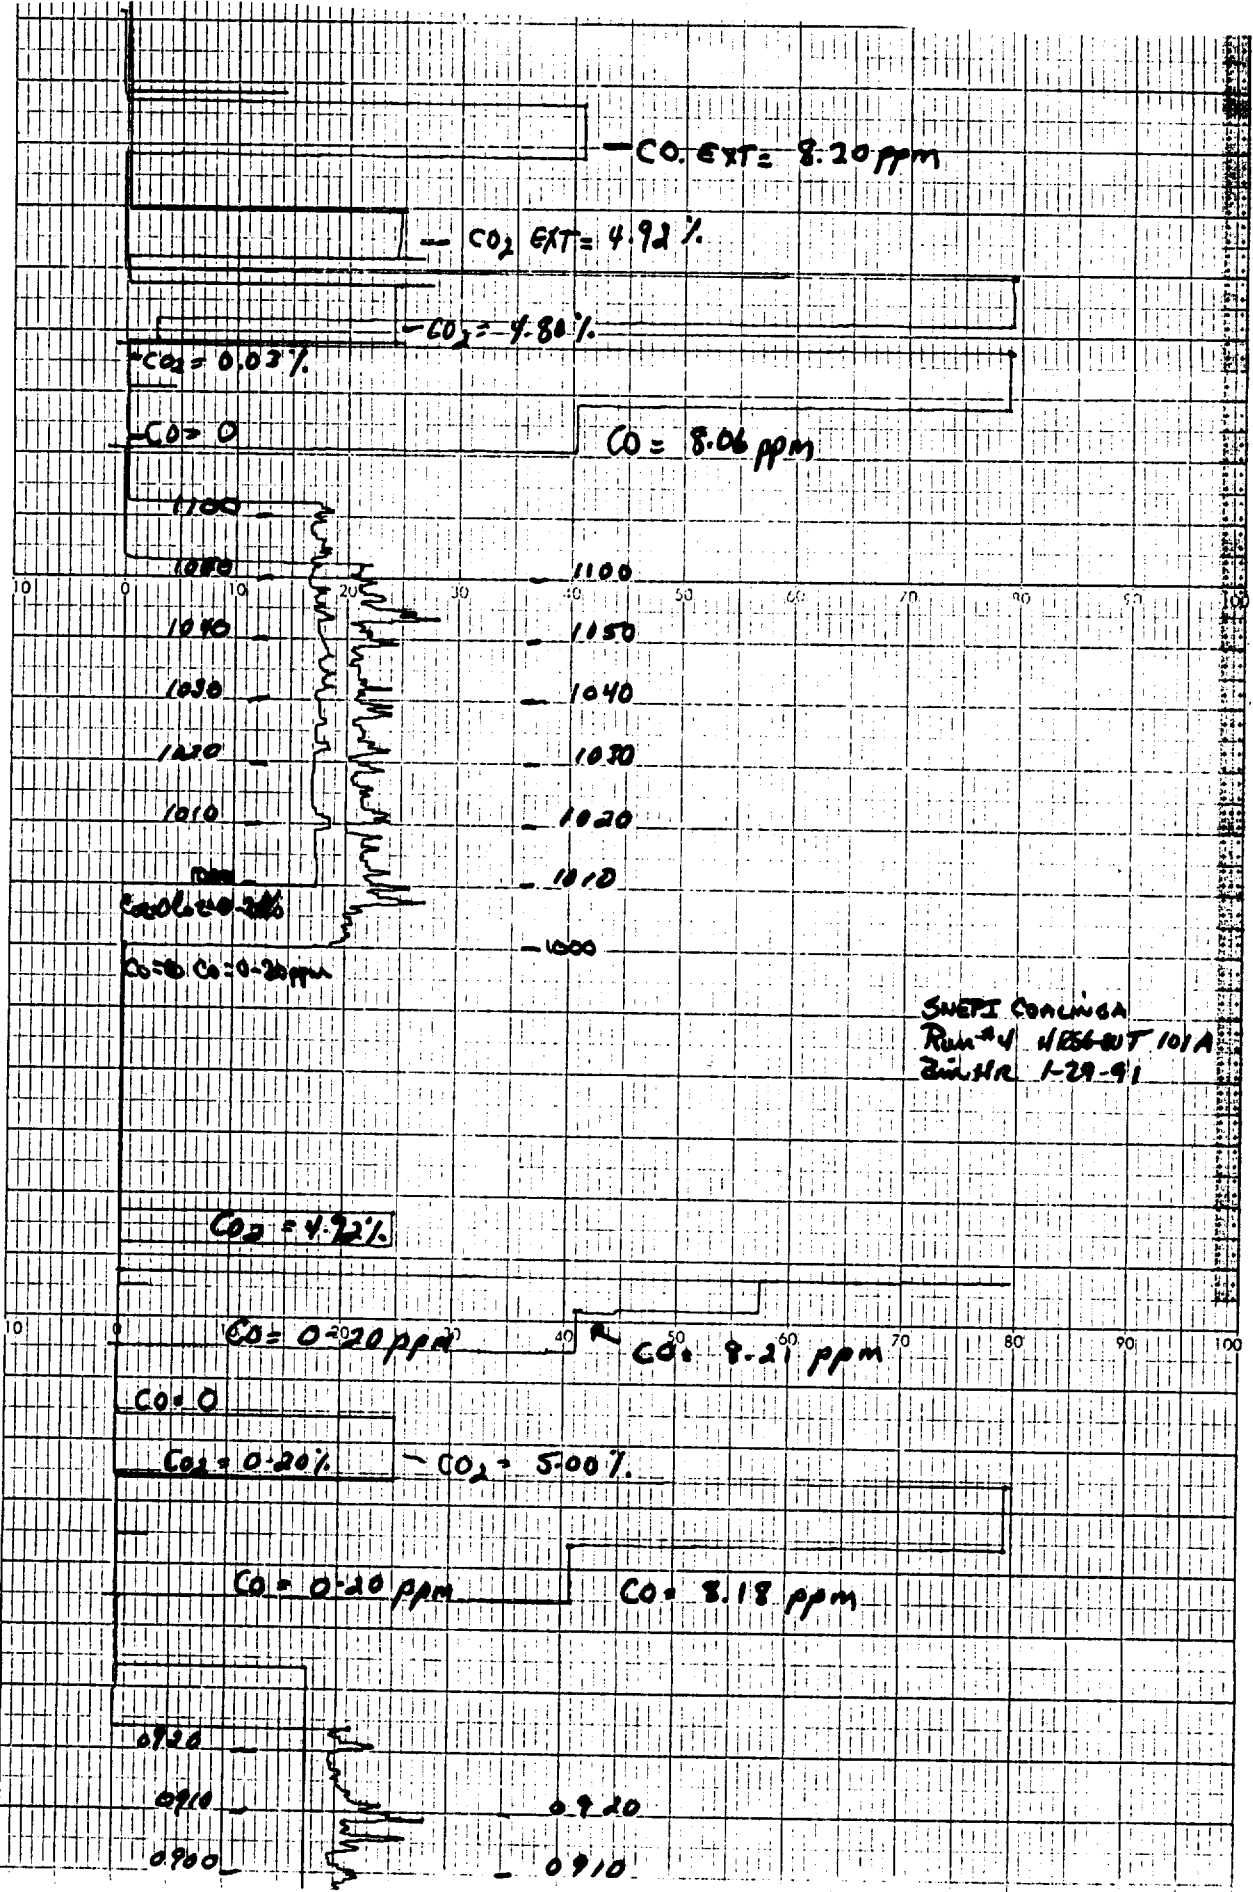 — CO. EXT = 8.20 ppm
— CO2 EXT = 4.92 %
— CO2 = 4.80 %
CO2 = 0.03 %
CO = 0
CO = 8.06 ppm
1100
1100
10 0 10 20 30 40 50 60 70 80 90 100
1040 1050
1030 1040
1020 1030
1010 1020
1010
1000
CO = 0-20 ppm
SNEPI COALINGA
Run #4 101A
1-29-91
CO2 = 4.92 %
10 0 10 20 30 40 50 60 70 80 90 100
CO = 0-20 ppm CO = 8.21 ppm
CO = 0
CO2 = 0-20 % — CO2 = 5.00 %
CO = 0-20 ppm CO = 8.18 ppm
0920
0910 0920
0900 0910